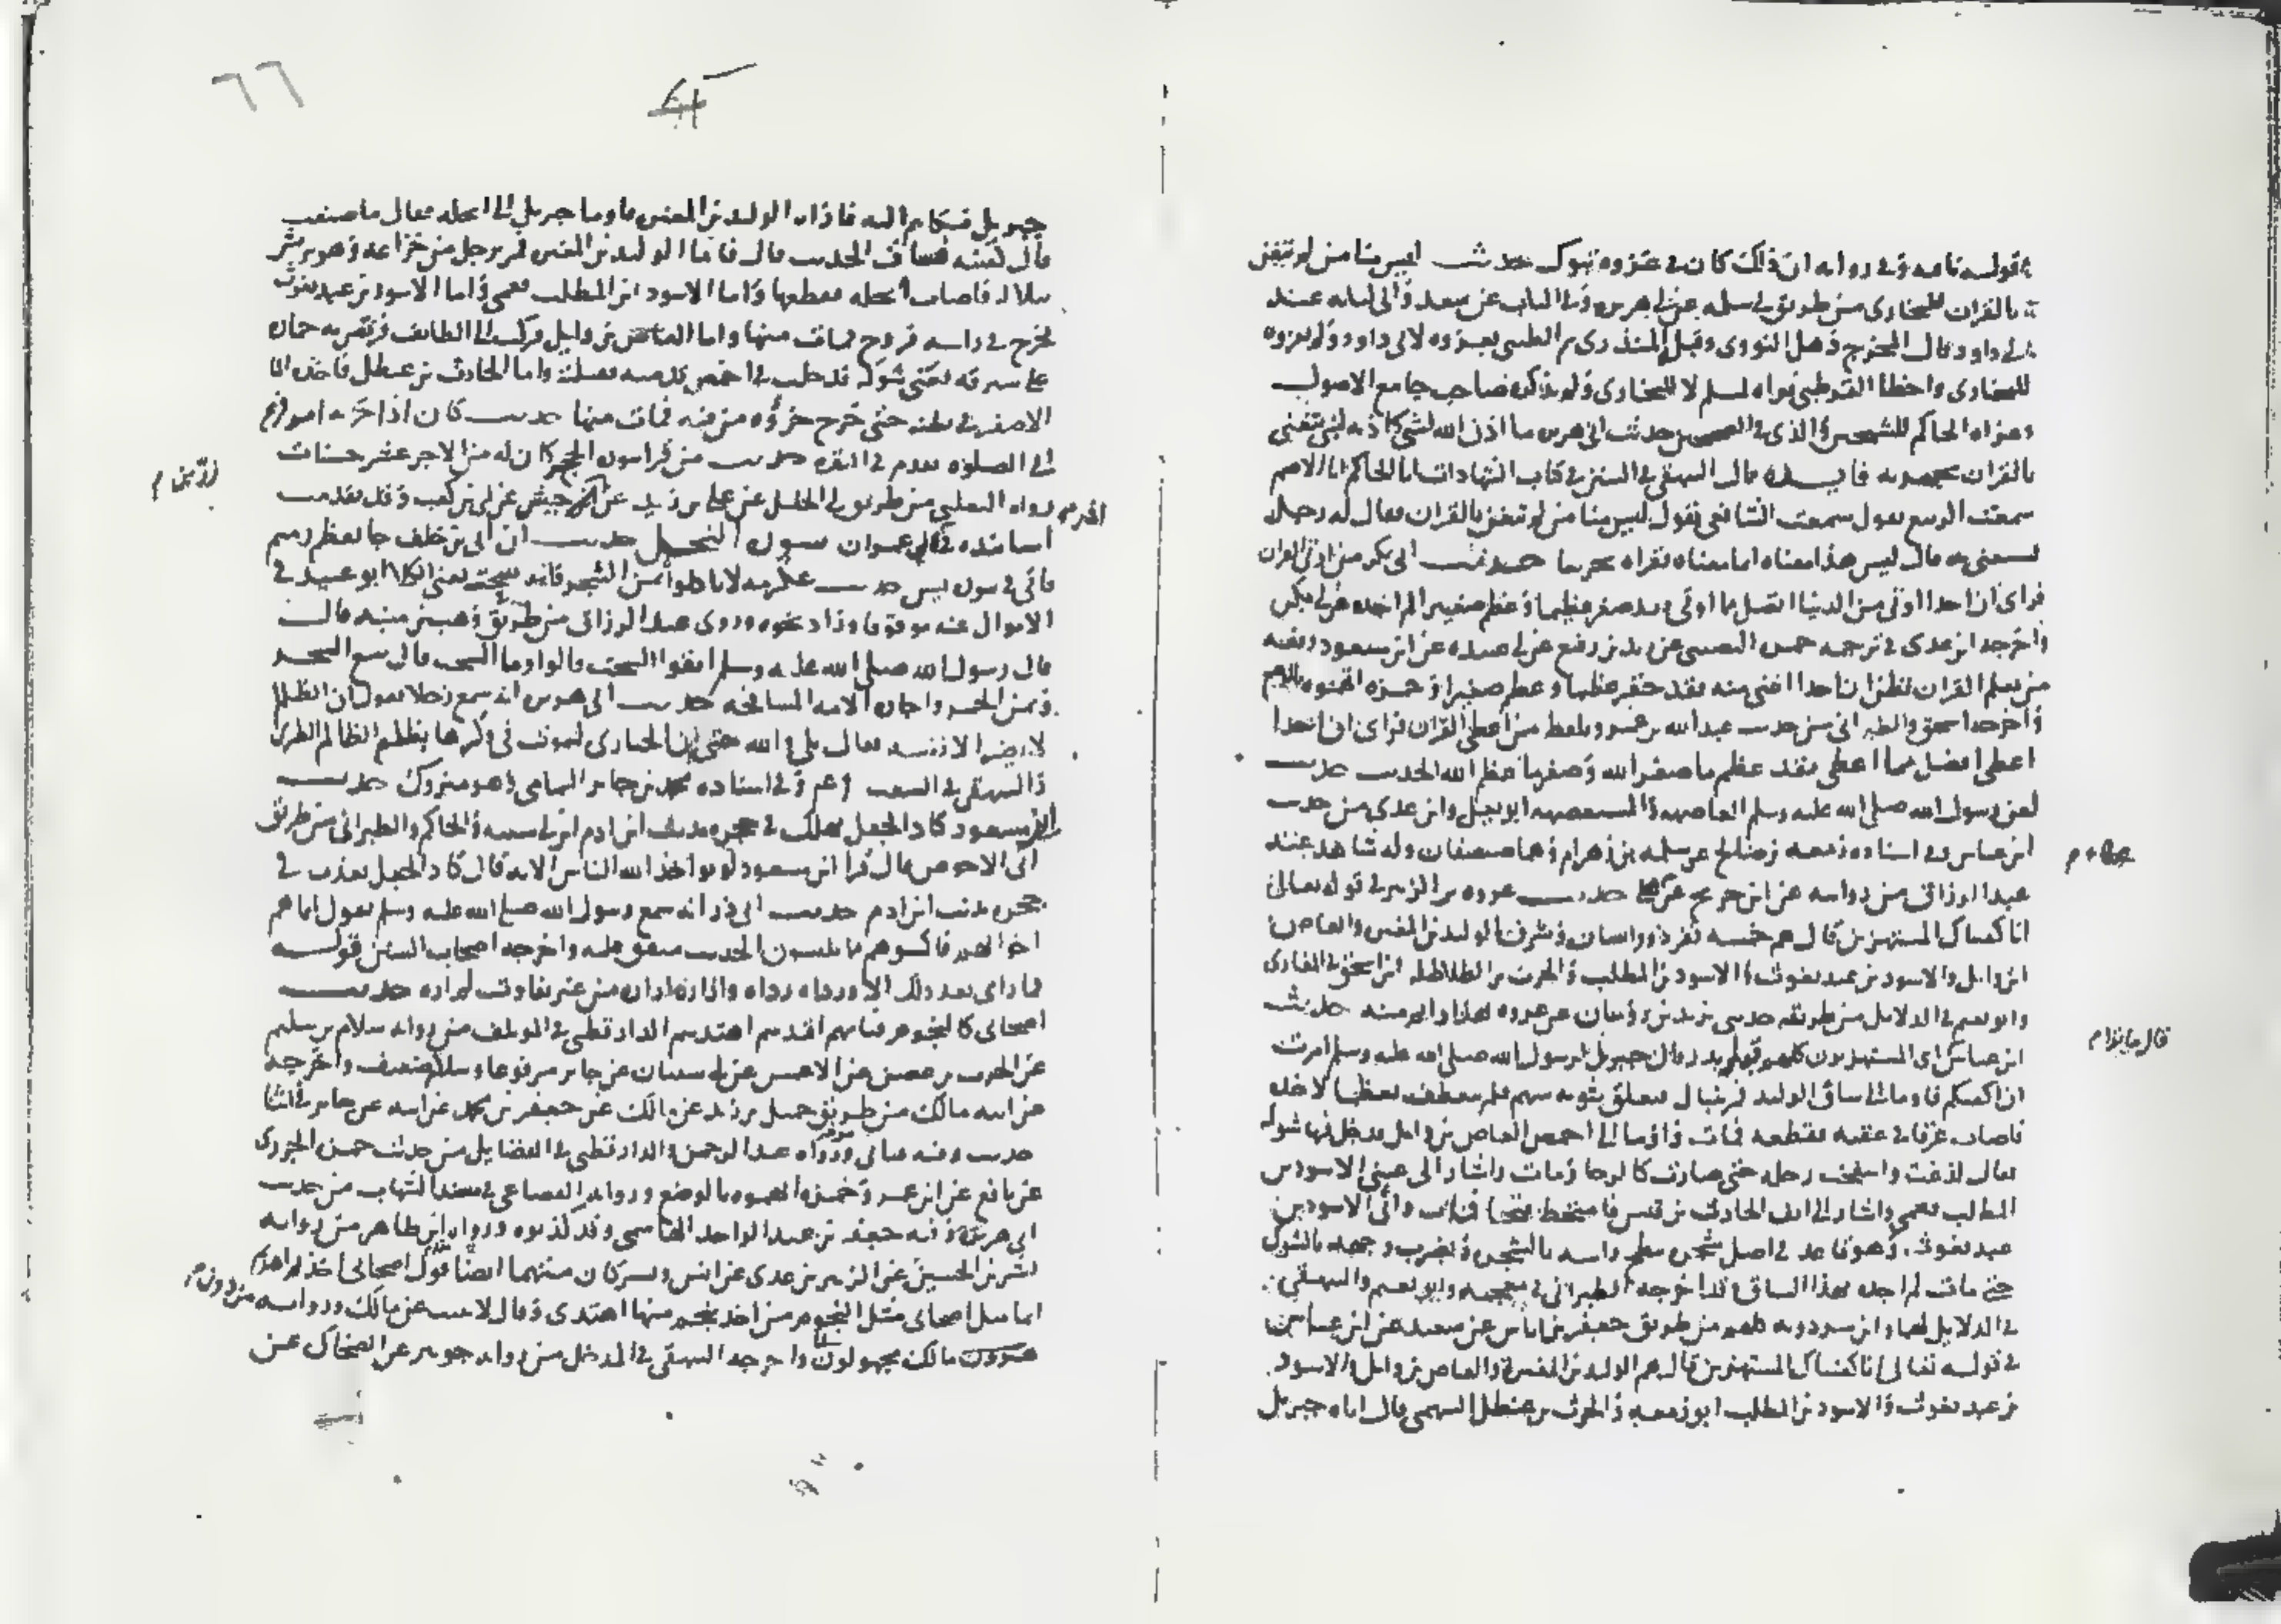 قوله تابعه وفي رواية ان ذلك كان في غزوة تبوك حديث ليس منا من لم يتغن
بالقران البخاري من طريق ابي سلمة عن ابي هريرة وفي الباب عن سعد وابي لبابة عند
ابي داود قال المخرج ذهل النووي وقبله المنذري ثم الطيبي بعزوه لابي داود ولم يعزوه
للبخاري واخطا القرطبي فعزاه لمسلم لا للبخاري ولم يذكره صاحب جامع الاصول
وعزاه الحاكم للشيخين والذي في الصحيحين حديث ابي هريرة ما اذن الله لشي كاذنه لنبي يتغنى
بالقران يجهر به فايدة قال البيهقي في السنن في كتاب الشهادات انا الحاكم انا الاصم
سمعت الربيع يقول سمعت الشافعي يقول ليس منا من لم يتغن بالقران فقال له رجل
يستغني به قال ليس هذا معناه انما معناه يقراه تحزينا حديث ابي بكر من اوتي القران
فراى ان احدا اوتي من الدنيا افضل مما اوتي فقد صغر عظيما وعظم صغيرا لم اجده عن ابي بكر
واخرجه ابن عدي في ترجمة حمزة النصيبي عن زيد بن رفيع عن ابي عبيدة عن ابن مسعود رفعه
من تعلم القران فظن ان احدا اغنى منه فقد حقر عظيما وعظم صغيرا وحمزة اتهموه بالوضع
واخرجه اسحق والطبراني من حديث عبد الله بن عمرو بلفظ من اعطي القران فراى ان احدا
اعطي افضل مما اعطي فقد عظم ما صغر الله وصغر ما عظم الله الحديث حديث
لعن رسول الله صلى الله عليه وسلم العاضهة والمستعضهة ابو يعلى وابن عدي من حديث
ابن عباس وفي اسناده زمعة بن صالح عن سلمة بن وهرام وهما ضعيفان وله شاهد عند
عبد الرزاق من رواية عن ابن جريج عن عطا حديث عروة بن الزبير في قوله تعالى
انا كفيناك المستهزئين قال هم خمسة نفر ذوو اسنان وشرف الوليد بن المغيرة والعاص
ابن وايل والاسود بن عبد يغوث والاسود بن المطلب والحرث بن الطلاطلة ابن اسحق في المغازي
وابو نعيم في الدلايل من طريقه حدثني يزيد بن رومان عن عروة بهذا واتم منه حديث
ابن عباس في المستهزئين كلهم قبل بدر قال جبريل لرسول الله صلى الله عليه وسلم امرت
ان اكفيكهم فاومأ الى ساق الوليد فمر بنبال فتعلق بثوبه سهم فلم ينعطف تعظما لاخذه
فاصاب عرقا في عقبه فقطعه فمات واومأ الى اخمص العاص بن وايل فدخل فيها شوكة
فقال لدغت وانتفخت رجله حتى صارت كالرحا ومات واشار الى عيني الاسود بن
المطلب فعمي واشار الى انف الحارث بن قيس فامتخط قيحا فمات والى الاسود بن
عبد يغوث وهو قاعد في اصل شجرة ينطح راسه بالشجرة ويضرب وجهه بالشوك
حتى مات لم اجده بهذا السياق وقد اخرجه الطبراني في معجمه وابو نعيم والبيهقي
في الدلايل لهما وابن مردويه كلهم من طريق جعفر بن اياس عن سعيد عن ابن عباس
في قوله تعالى انا كفيناك المستهزئين قال هم الوليد بن المغيرة والعاص بن وايل والاسود
بن عبد يغوث والاسود بن المطلب ابو زمعة والحرث بن عيطل السهمي قال اتاه جبريل
قال ما بزام
٦٦
جبريل فشكاهم اليه فاراه الوليد بن المغيرة فاومأ جبريل الى اكحله فقال ما صنعت
قال كفيته فساق الحديث قال فاما الوليد بن المغيرة فمر برجل من خزاعة وهو يريش
نبلا له فاصاب اكحله فقطعها واما الاسود ابن المطلب فعمي واما الاسود بن عبد يغوث
فخرج في راسه قروح فمات منها واما العاص بن وايل فركب الى الطايف فربض به حمار
على شبرقة يعني شوكة فدخلت في اخمص قدميه فقتلته واما الحارث بن عيطل فاخذه الما
الاصفر في بطنه حتى خرج خرؤه من فيه فمات منها حديث كان اذا حزبه امر فزع
الى الصلوة تقدم في البقرة حديث من قرا سورة الحجر كان له من الاجر عشر حسنات
رواه الثعلبي من طريق ابي الخليل عن علي بن زيد عن زر بن حبيش عن ابي بن كعب وقد تقدمت
اسانيده في آل عمران سورة النحل حديث ان ابي بن خلف جا بعظم رميم
ياتي في سورة يس حديث عكرمة لا تاكلوا ثمن الشجر فانه سحت يعني الكلا ابو عبيد في
الاموال عنه موقوفا وزاد نحوه وروى عبد الرزاق من طريق وهب بن منبه قال
قال رسول الله صلى الله عليه وسلم اتقوا السحت قالوا وما السحت قال بيع الشجر
وثمن الخمر واجارة الامة المسافحة حديث ابي هريرة انه سمع رجلا يقول ان الظالم
لا يضر الا نفسه فقال بلى والله حتى ان الحبارى لتموت في وكرها بظلم الظالم الطبري
والبيهقي في الشعب وفي اسناده محمد بن جابر اليمامي وهو متروك حديث
ابن مسعود كاد الجعل يهلك في جحره بذنب ابن ادم ابن ابي شيبة والحاكم والطبراني من طريق
ابي الاحوص قال قرا ابن مسعود ولو يواخذ الله الناس الاية قال كاد الجعل يعذب في
جحره بذنب ابن ادم حديث ابي ذر انه سمع رسول الله صلى الله عليه وسلم يقول انما هم
اخوانكم فاكسوهم مما تلبسون الحديث متفق عليه واخرجه اصحاب السنن قوله
فما راى بعد ذلك الا ورداه رداه وازاره ازاره من غير تفاوت لم اره حديث
اصحابي كالنجوم فبايهم اقتديتم اهتديتم الدارقطني في المؤتلف من رواية سلام بن سليم
عن الحرث بن غصين عن الاعمش عن ابي سفيان عن جابر مرفوعا وسلام ضعيف واخرجه
في غرايب مالك من طريق حميل بن زيد عن مالك عن جعفر بن محمد عن ابيه عن جابر في اثنا
عن نافع عن ابن عمر وحمزة اتهموه بالوضع ورواه القضاعي في مسند الشهاب من حديث
ابي هريرة وفيه جعفر بن عبد الواحد الهاشمي وقد كذبوه ورواه ابن طاهر من رواية
بشر بن الحسين عن الزبير بن عدي عن انس وبشر كان متهما ايضا
انما مثل اصحابي مثل النجوم من اخذ بنجم منها اهتدى وقال لا يثبت عن مالك ورواته من دون
مالك مجهولون واخرجه البيهقي في المدخل من رواية جويبر عن الضحاك عن